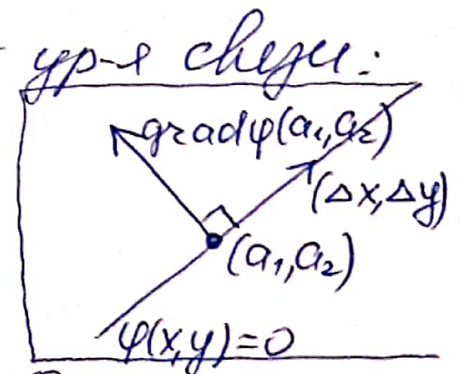 ур-я связи:
gradφ(a₁,a₂)
(Δx,Δy)
(a₁,a₂)
φ(x,y)=0